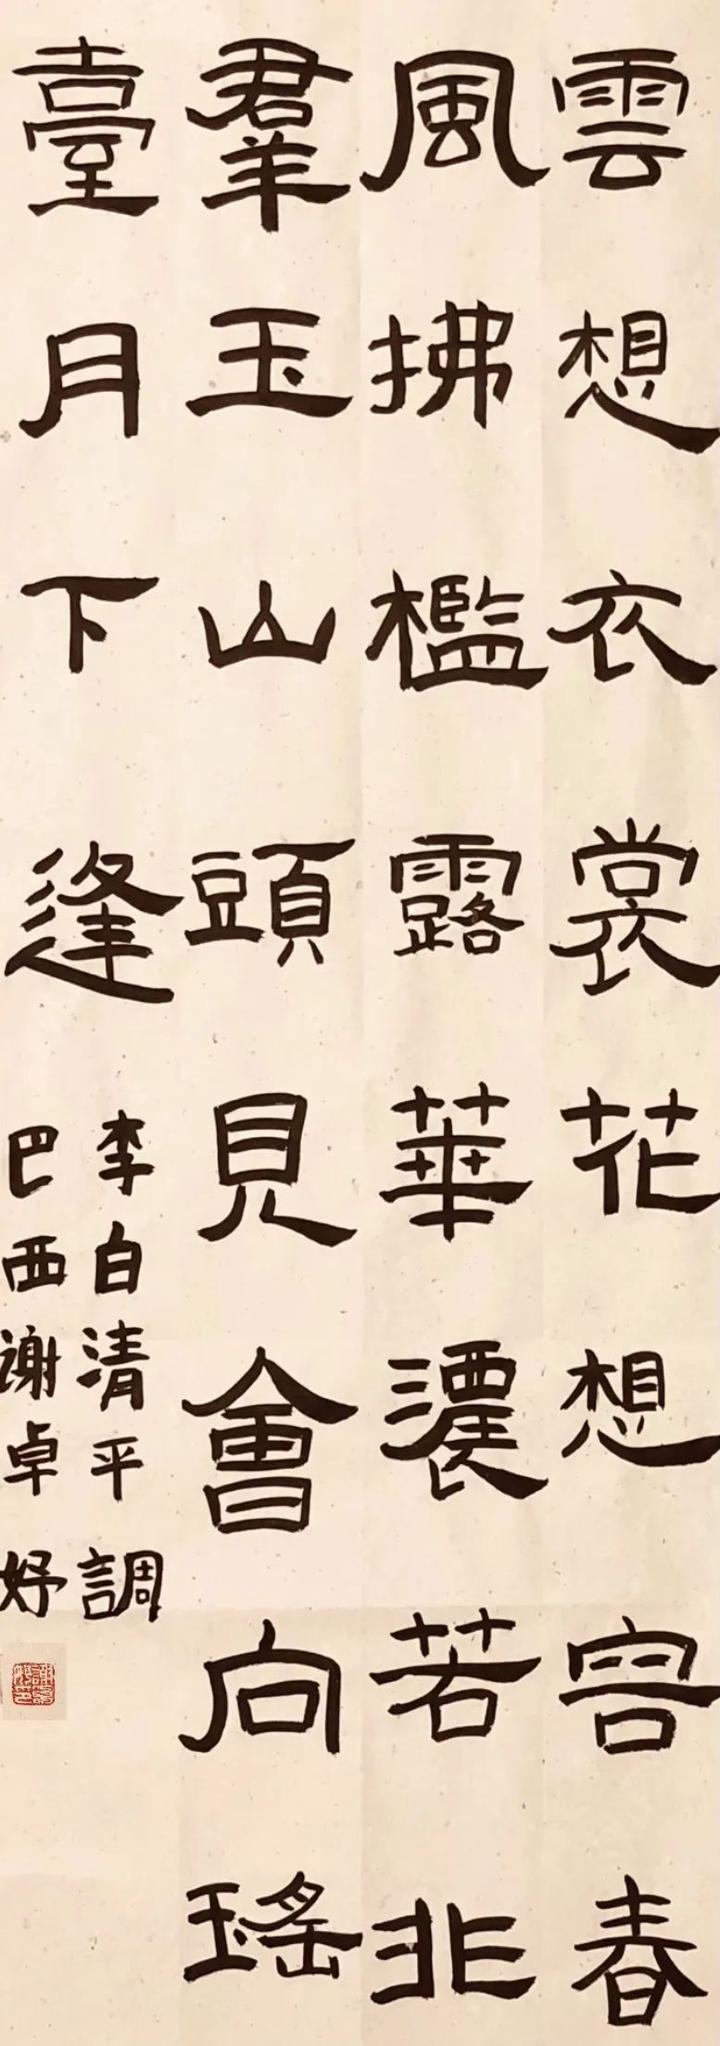 雲想衣裳花想容春
風拂檻露華濃若非
羣玉山頭見會向瑤
臺月下逢
李白清平調
巴西谢卓妤